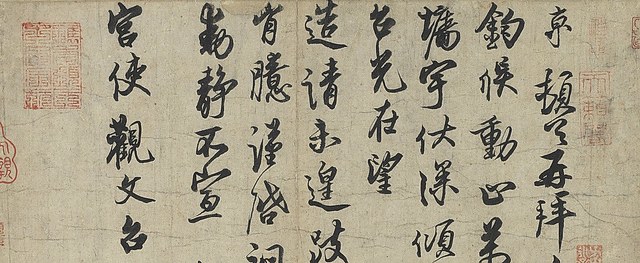 京 頓首再拜
鈞候動止萬
牖宇伏深傾
台光在望
造請未遑跂
肯臆謹啓詞
動靜不宣
宮使觀文台